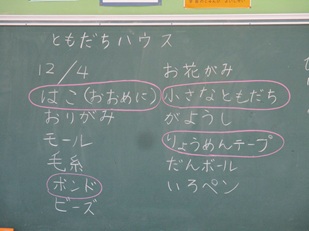 ともだちハウス
12/4
はこ(おおめに)
おりがみ
モール
毛糸
ボンド
ビーズ
お花がみ
小さなともだち
がようし
りょうめんテープ
だんボール
いろペン